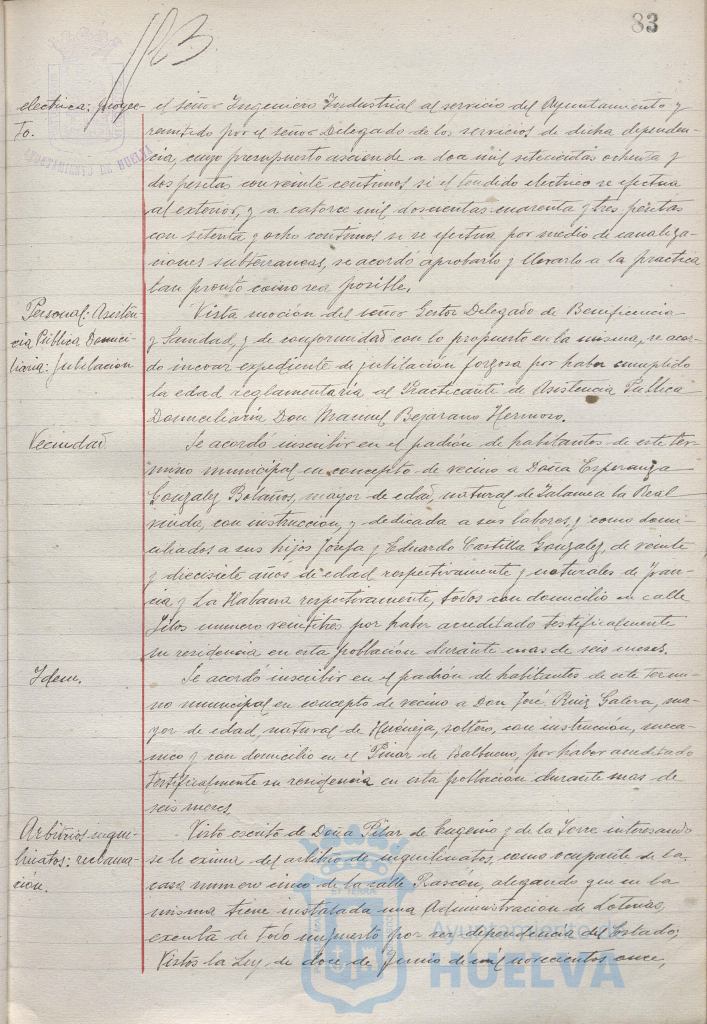 83
AYUNTAMIENTO DE HUELVA
electrica: proyec-
to.
el señor Ingeniero Industrial al servicio del Ayuntamiento y
remitido por el señor Delegado de los servicios de dicha dependen-
cia, cuyo presupuesto asciende a doce mil setecientas ochenta y
dos pesetas con veinte centimos si el tendido electrico se efectua
al exterior, y a catorce mil doscuentas cuarenta y tres pesetas
con setenta y ocho centimos si se efectua por medio de canaliza-
ciones subterraneas, se acordó aprobarlo y llevarlo a la practica
tan pronto como sea posible.
Personal: Asisten-
cia Pública Domici-
liaria: Jubilación
Vista moción del señor Gestor Delegado de Beneficencia
y Sanidad, y de conformidad con lo propuesto en la misma, se acor-
do incoar expediente de jubilación forzosa por haber cumplido
la edad reglamentaria al Practicante de Asistencia Publica
Domiciliaria Don Manuel Bejarano Hermoso.
Vecindad
Se acordó inscribir en el padrón de habitantes de este ter-
mino municipal en concepto de vecino a Doña Esperanza
Gonzalez Bolaños, mayor de edad, natural de Zalamea la Real
viuda, con instruccion, y dedicada a sus labores, y como domi-
ciliados a sus hijos Josefa y Eduardo Castilla Gonzalez, de veinte
y diecisiete años de edad respectivamente y naturales de Fran-
cia y La Habana respectivamente, todos con domicilio en calle
Silos numero veintitres por haber acreditado testificalmente
su residencia en esta población durante mas de seis meses.
Idem.
Se acordó inscribir en el padrón de habitantes de este termi-
no municipal en concepto de vecino a Don José Ruiz Galera, ma-
yor de edad, natural de Huéneja, soltero, con instrucción, meca-
nico y con domicilio en el Pinar de Balbueno, por haber acreditado
testificalmente su residencia en esta población durante mas de
seis meses.
Arbitrios inqui-
linatos: reclama-
ción.
Visto escrito de Doña Pilar de Eugenio y de la Torre interesando
se le exima del arbitrio de inquilinatos, como ocupante de la
casa numero cinco de la calle Rascón, alegando que en la
misma tiene instalada una Administracion de Loterias,
exenta de todo impuesto por ser dependencia del Estado;
Vistos la Ley de doce de Junio de mil novecientos once,
Ayuntamiento de
HUELVA